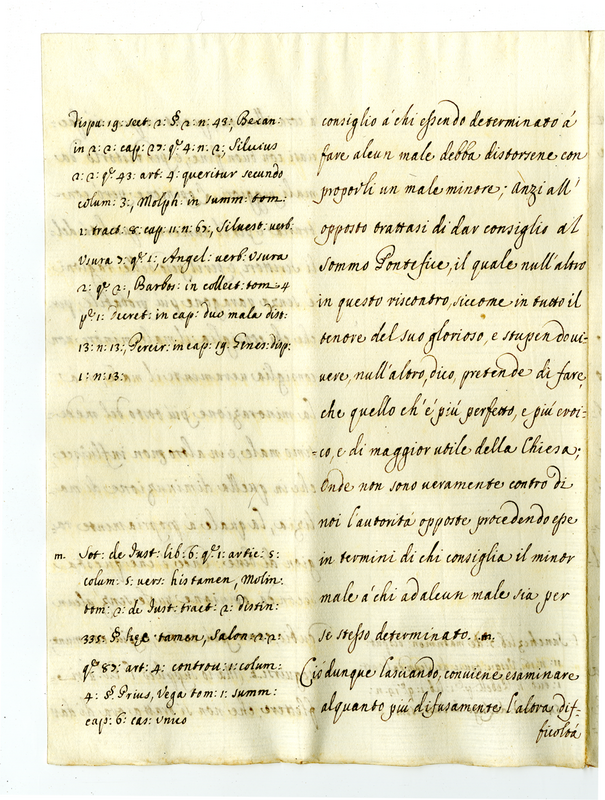 dispu: 19: sect: 2: §: 2: n: 43:, Becan:
in 2: 2: cap: 27: q: 4: n: 2:, Siluius
2: 2: q: 43: art: 4: queritur secundo
colum: 3:, Molph: in summ: tom:
1: tract: 8: cap: 11: n: 67:, Siluest: verb:
Vsura 7: q: 1:, Angel: verb: Vsura
2: q: 2:, Barbos: in collect: tom: 4
p: 1: decret: in cap: duo mala dist:
13: n: 13:, Pereir: in cap: 19: Genes: disp:
1: n: 13:
m. Sot: de Iust: lib: 6: q: 1: artic: 5:
colum: 5: vers: his tamen, Molin:
tom: 2: de Iust: tract: 2: distin:
335: §: hęc tamen, Salon 2: 2:
q: 87: art: 4: controu: 1: colum:
4: §: Prius, Vega tom: 1: summ:
cap: 6: cas: vnico
consiglio á chi essendo determinato á
fare alcun male debba distorsene con
proporli un male minore; anzi all'
opposto trattasi di dar consiglio al
Sommo Pontefice, il quale null'altro
in questo riscontro, siccome in tutto il
tenore del suo glorioso, e stupendo vi-
vere, null'altro, dico, pretende di fare,
che quello ch'é piú perfetto, e piú eroi-
=co, e di maggior utile della Chiesa;
Onde non sono veramente contro di
noi l'autoritá opposte procedendo esse
in termini di chi consiglia il minor
male á chi ad alcun male sia per
se stesso determinato. m.
Ció dunque lasciando, conviene esaminare
alquanto piú difusamente l'altra dif-
ficoltá